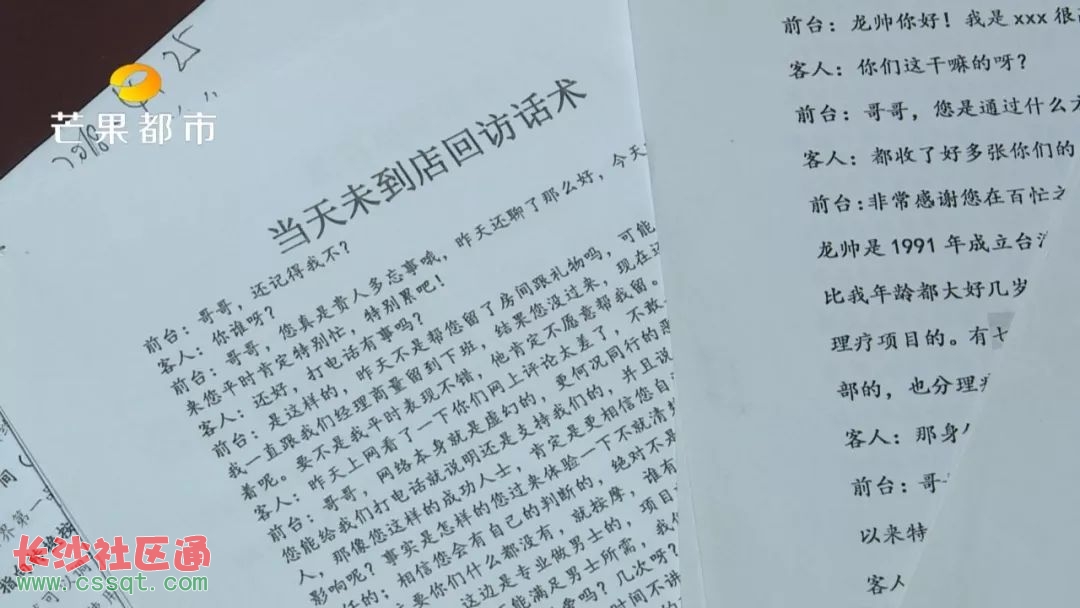 芒果都市
25
当天未到店回访话术
前台：哥哥，还记得我不？
客人：你谁呀？
前台：哥哥，您真是贵人多忘事哦，昨天还聊了那么好，今天
来您平时肯定特别忙，特别累吧！
客人：还好，打电话有事吗？
前台：是这样的，昨天不是帮您留了房间跟礼物吗，可能
我一直跟我们经理商量留到下班，结果您没过来，现在还
着呢。要不是我平时表现不错，他肯定不愿意帮我留。
客人：昨天上网看了一下你们网上评论太差了，不敢
前台：哥哥，网络本身就是虚幻的，更何况同行的恶
您能给我们打电话就说明还是支持我们的，并且说
人，那像您这样的成功人士，肯定是更相信您自
影响呢？事实是怎样的您过来体验一下不就清
任的；相信您会有自己的判断的，绝对不是
要你们什么都没有，就按摩，谁有
这边是专业做男士的，项目
能满足男士所需，我们
几次呀？
时间不讲
前台：龙帅你好！我是 xxx 很
客人：你们这干嘛的呀？
前台：哥哥，您是通过什么
客人：都收了好多张你们的
前台：非常感谢您在百忙之
龙帅是 1991 年成立台
比我年龄都大好几岁
理疗项目的。有七
部的，也分理
客人：那身
前台：哥
以来特
客人
间
界第一
长沙社区通
www.cssqt.com